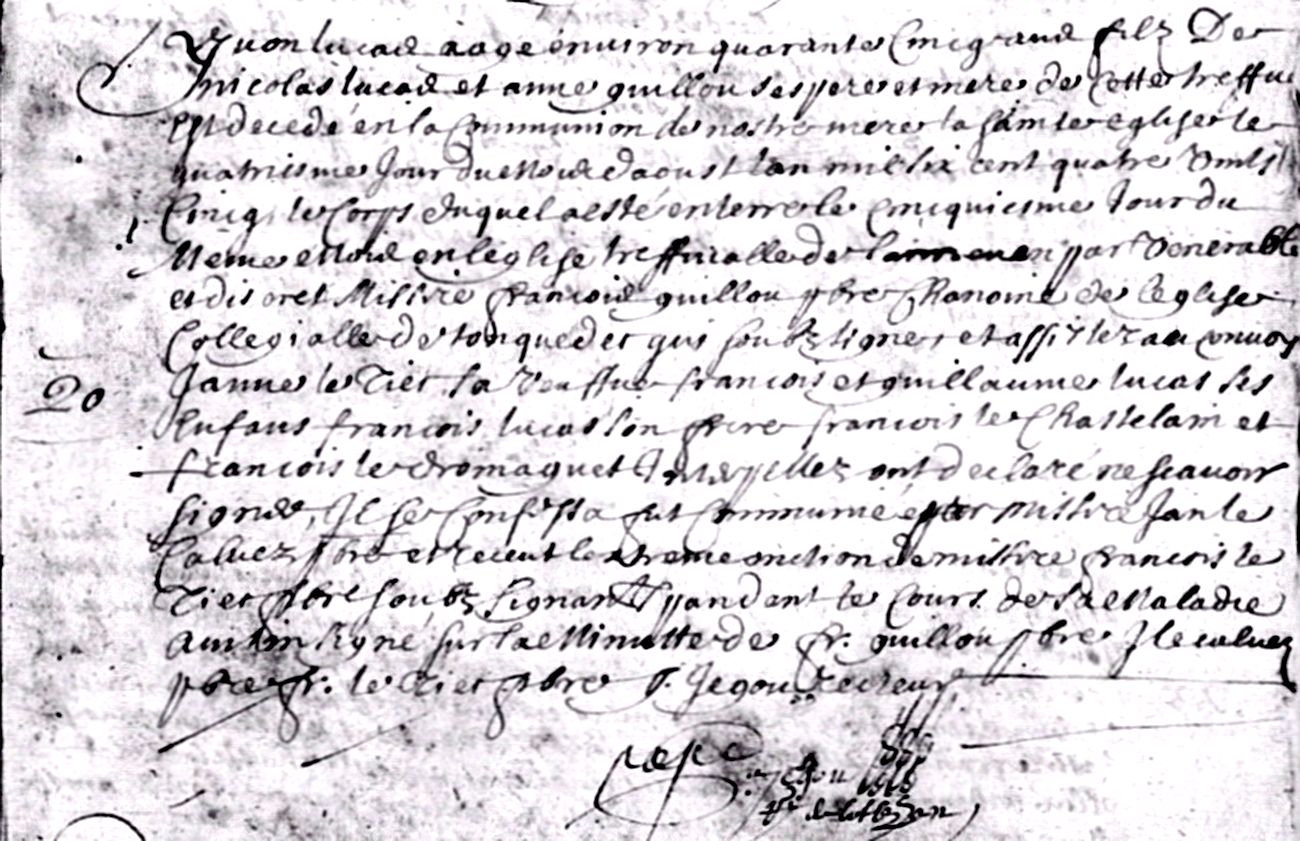 Yvon lucas aage environ quarante Cincq ans filz De
nicolas lucas et anne guillou ses pere et mere de cette treffve
Est decedé en la Communion de nostre mere la Saincte eglise le
quatriesme Jour du Mois d'aoust l'an mil six cent quatre vints
Cincq, le Corps duquel a esté enterre le cincquiesme Jour du
Meme Mois en l'eglise treffvialle de par venerable
et discret Missire francois guillou pbre Chanoine de l'eglise
Collegialle de tonquedec qui soubz signe, et assistez au convoy
20
Janne le Tiec sa veuffve francois et guillaume lucas ses
Enfans francois lucas son frere francois le Chastelain et
francois le dromaguet Interpellez ont declaré ne scavoir
signer, Il se Confessa fut Communié par missire Jan le
Calvez pbre et receut l'extreme onction de missire francois le
Tiec pbre soubz signant pandant le Cours de sa Maladie
ainsin signé sur la Minutte de fr. guillou pbre J le calvez
pbre fr. le Tiec pbre Y. Jegou Recteur